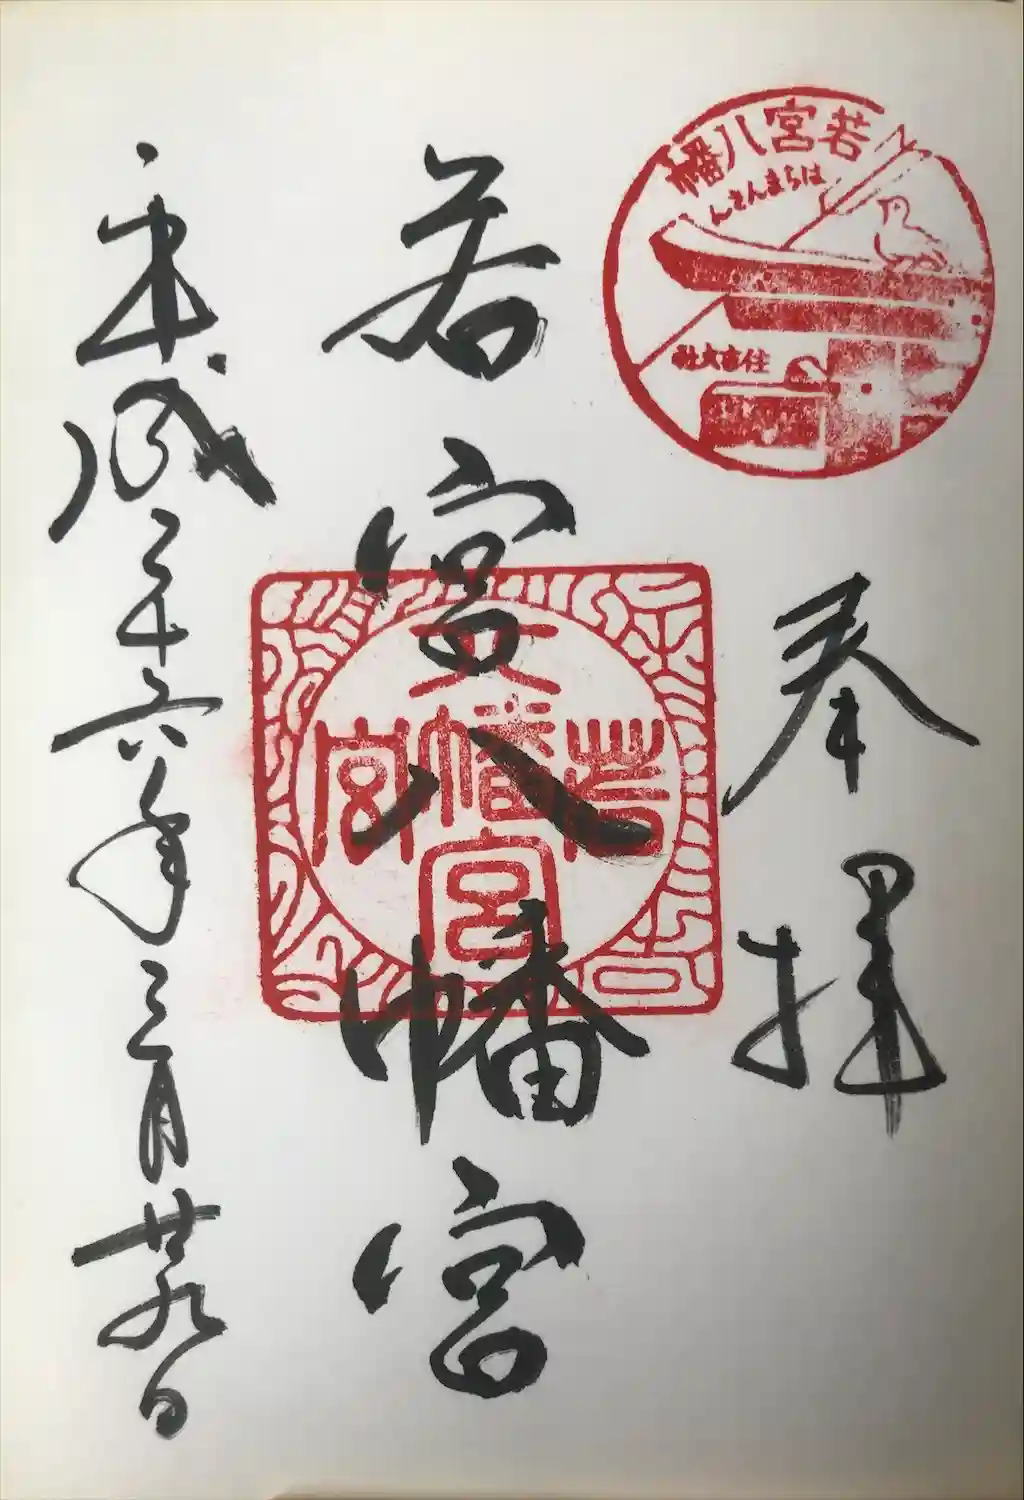 若宮八幡
はちまんさん
住吉大社
奉拝
若宮八幡宮
若宮八幡宮
平成二十六年三月廿九日